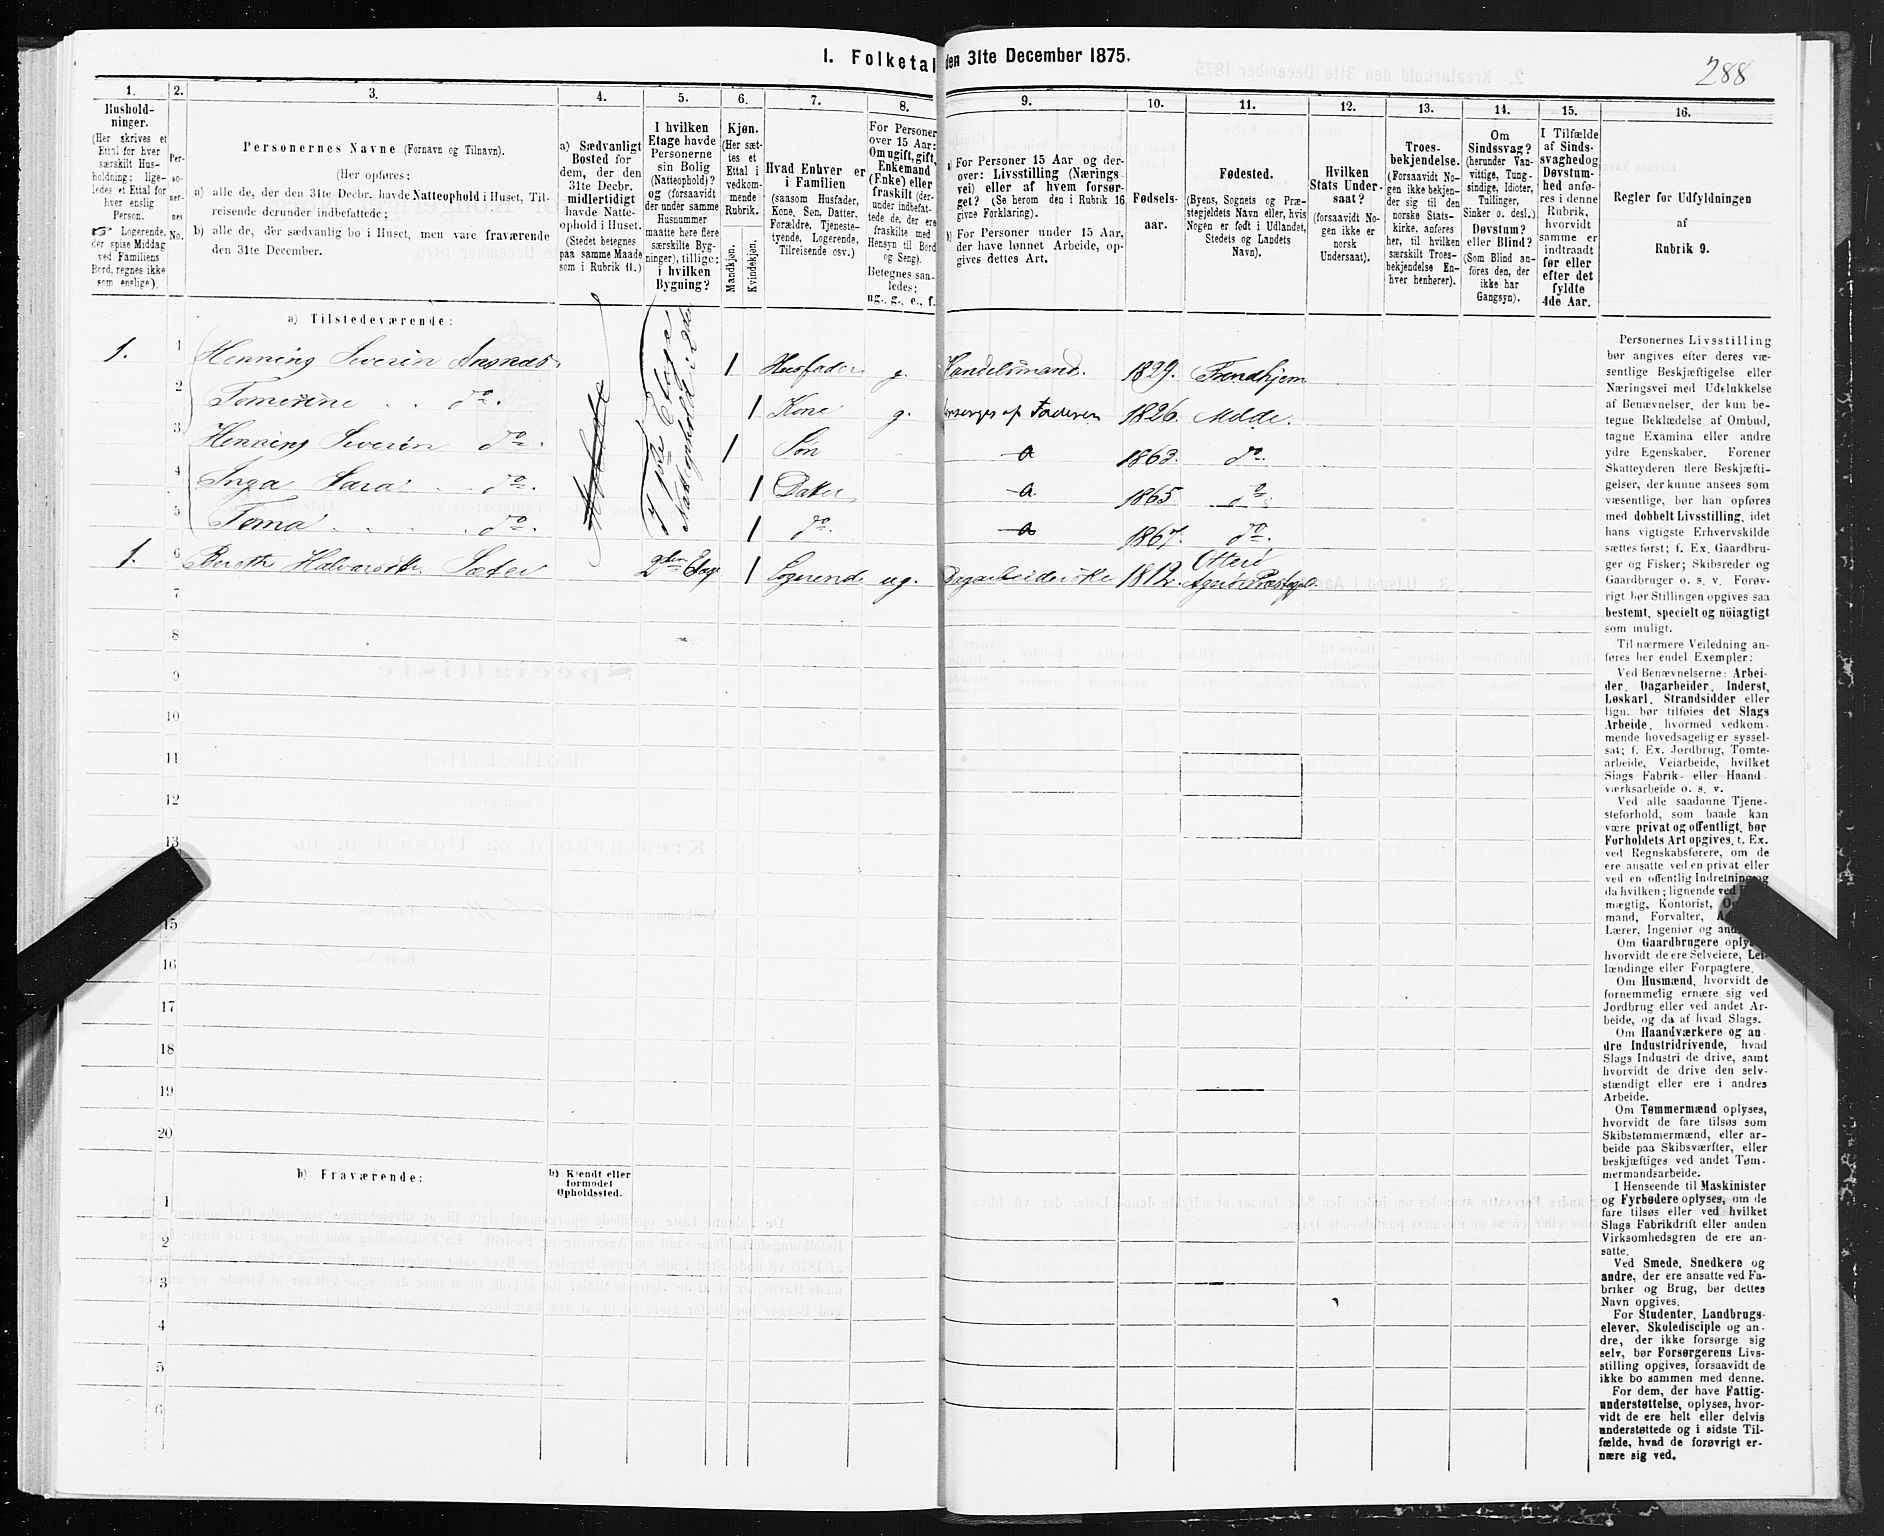 1. Folketal den 31te December 1875.
288
1.
Hushold-
ninger.
(Her skrives et
Ettal for hver
særskilt Hus-
holdning; lige-
ledes et Ettal for
hver enslig
Person.
Logerende,
der spise Middag
ved Familiens
Bord, regnes ikke
som enslige).
2.
Per-
so-
ner-
nes
No.
3.
Personernes Navne (Fornavn og Tilnavn).
(Her opføres:
a) alle de, der den 31te Decbr. havde Natteophold i Huset, Til-
reisende derunder indbefattede;
b) alle de, der sædvanlig bo i Huset, men vare fraværende
den 31te December.
4.
a) Sædvanligt
Bosted for
dem, der den
31te Decbr.
midlertidigt
havde Natte-
ophold i Huset.
(Stedet betegnes
paa samme Maade
som i Rubrik 11.)
5.
I hvilken
Etage havde
Personerne
sin Bolig
(Natteophold)?
og (forsaavidt
der under samme
Husnummer
maatte høre flere
særskilte Byg-
ninger), tillige:
i hvilken
Bygning?
6.
Kjøn.
(Her sæt-
tes et
Ettal i
vedkom-
mende
Rubrik.
Mandkjøn.
Kvindekjøn.
7.
Hvad Enhver er
i Familien
(saasom Husfader,
Kone, Søn, Datter,
Forældre, Tjeneste-
tyende, Logerende,
Tilreisende osv.)
8.
For Personer
over 15 Aar:
Om ugift, gift,
Enkemand
(Enke) eller
fraskilt (der-
under indbefat-
tede de, der ere
fraskilte med
Hensyn til Bord
og Seng).
Betegnes saa-
ledes:
ug., g., e., f.
9.
a) For Personer 15 Aar og der-
over: Livsstilling (Nærings-
vei) eller af hvem forsør-
get? (Se herom den i Rubrik 16
givne Forklaring).
b) For Personer under 15 Aar,
der have lønnet Arbeide, op-
gives dettes Art.
10.
Fødsels-
aar.
11.
Fødested.
(Byens, Sognets og Præ-
stegjeldets Navn eller, hvis
Nogen er født i Udlandet,
Stedets og Landets
Navn).
12.
Hvilken
Stats Under-
saat?
(forsaavidt No-
gen ikke er
norsk
Undersaat).
13.
Troes-
bekjendelse.
(Forsaavidt No-
gen ikke bekjen-
der sig til den
norske Stats-
kirke, anføres
her, til hvilken
særskilt Troes-
bekjendelse En-
hver henhører).
14.
Om
Sindssvag?
(herunder Van-
vittige, Tung-
sindige, Idioter,
Tullinger,
Sinker o. desl.)
Døvstum?
eller Blind?
(Som Blind an-
føres den, der
ikke har
Gangsyn).
15.
I Tilfælde
af Sinds-
svaghed og
Døvstum-
hed anfø-
res i denne
Rubrik,
hvorvidt
samme er
indtraadt
før eller
efter det
fyldte
4de Aar.
16.
Regler for Udfyldningen
af
Rubrik 9.
a) Tilstedeværende:
1. 1 Henning Severin 1 Husfader g. Handelsmand. 1829. Trondhjem
2 do. 1 Kone g. forsørges af Faderen 1826. Molde.
3 Henning Severin do. 1 Søn a 1863. do.
4 Inga do. 1 Dater a 1865 do.
5 Toma do. 1 do. a 1867. do.
1ste Etage
Natteophold i 2den
1. 6 Sæter 2den Etag 1 Logerende ug. 1812. Otterø
7
8
9
10
11
12
13
15
16
17
18
19
20
b) Fraværende:
b) Kjendt eller
formodet
Opholdssted.
1
2
3
4
5
6
Personernes Livsstilling
bør angives efter deres væ-
sentlige Beskjæftigelse eller
Næringsvei med Udelukkelse
af Benævnelser, der kun be-
tegne Beklædelse af Ombud,
tagne Examina eller andre
ydre Egenskaber. Forener
Skatteyderen flere Beskjæfti-
gelser, der kunne ansees som
væsentlige, bør han opføres
med dobbelt Livsstilling, idet
hans vigtigste Erhvervskilde
sættes først; f. Ex. Gaardbru-
ger og Fisker; Skibsreder og
Gaardbruger o. s. v. Forøv-
rigt bør Stillingen opgives saa
bestemt, specielt og nöiagtigt
som muligt.
Til nærmere Veiledning an-
føres her endel Exempler:
Ved Benævnelserne: Arbei-
der, Dagarbeider, Inderst,
Løskarl, Strandsidder eller
lign. bør tilføies det Slags
Arbeide, hvormed vedkom-
mende hovedsagelig er syssel-
sat; f. Ex. Jordbrug, Tomte-
arbeide, Veiarbeide, hvilket
Slags Fabrik- eller Haand-
værksarbeide o. s. v.
Ved alle saadanne Tjene-
steforhold, som baade kan
være privat og offentligt, bør
Forholdets Art opgives, t. Ex.
ved Regnskabsførere, om de
ere ansatte ved en privat eller
ved en offentlig Indretning og
da hvilken; lignende ved
mægtig, Kontorist,
mand, Forvalter,
Lærer, Ingeniør og
Om Gaardbrugere oplyses,
hvorvidt de ere Selveiere, Lei-
lændinge eller Forpagtere.
Om Husmænd, hvorvidt de
fornemmelig ernære sig ved
Jordbrug eller ved andet Ar-
beide, og da af hvad Slags.
Om Haandværkere og an-
dre Industridrivende, hvad
Slags Industri de drive, samt
hvorvidt de drive den selv-
stændigt eller ere i andres
Arbeide.
Om Tømmermænd oplyses,
hvorvidt de fare tilsøs som
Skibstømmermænd, eller ar-
beide paa Skibsværfter, eller
beskjæftiges ved andet Tøm-
mermandsarbeide.
I Henseende til Maskinister
og Fyrbødere oplyses, om de
fare tilsøs eller ved hvilket
Slags Fabrikdrift eller anden
Virksomhedsgren de ere an-
satte.
Ved Smede, Snedkere og
andre, der ere ansatte ved Fa-
briker og Brug, bør dettes
Navn opgives.
For Studenter, Landbrugs-
elever, Skoledisciple og an-
dre, der ikke forsørge sig
selv, bør Forsørgerens Livs-
stilling opgives, forsaavidt de
ikke bo sammen med denne.
For dem, der have Fattig-
understøttelse, oplyses, hvor-
vidt de ere helt eller delvis
understøttede og i sidste Til-
fælde, hvad de forøvrigt er-
nære sig ved.